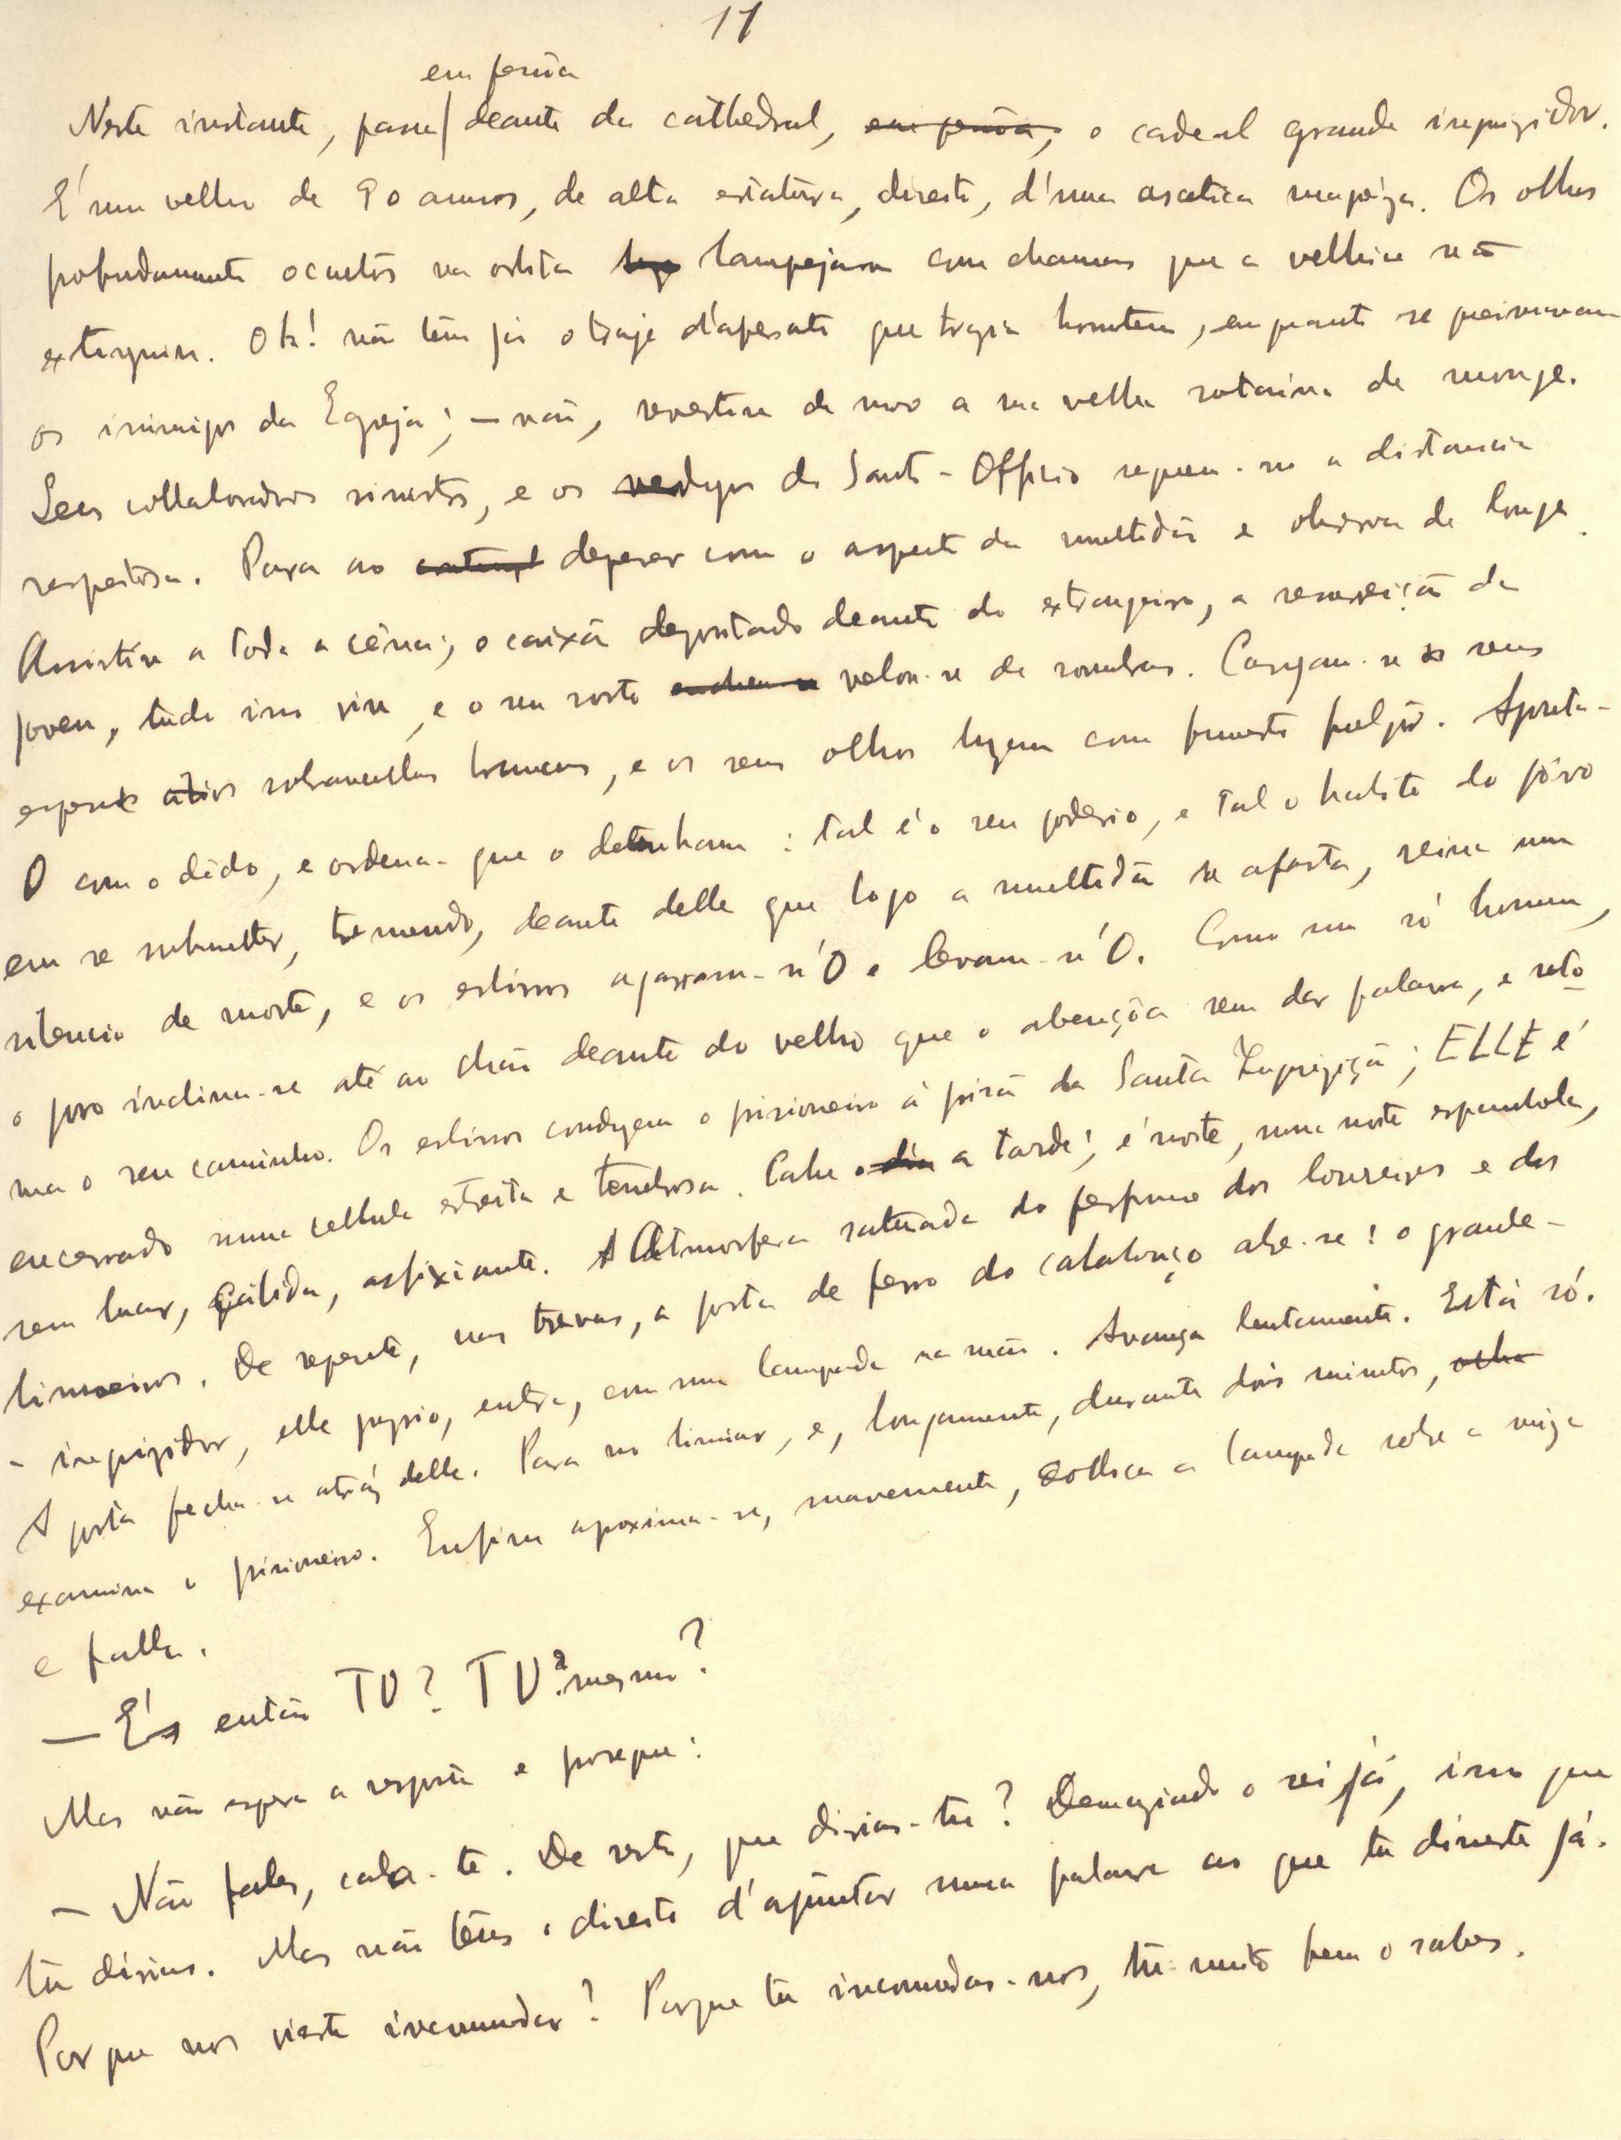 11
em pessôa
Neste instante, passa deante da cathedral, em pessôa, o cardeal grande inquizidor.
É um velho de 90 annos, de alta estatura, direito, d'uma ascetica magrêza. Os olhos
profundamente occultos na orbita lampejam com chamas que a velhice não
extinguira. Oh! não tem já o traje d'apparato que trazia hontem, emquanto se queimavam
os inimigos da Egreja; — não, revestira de novo a sua velha sotaina de monge.
Seus collaboradores sinistros, e os verdugos do Santo-Officio seguem-no a distancia
respeitosa. Para ao contempl deparar com o aspecto da multidão e observa de longe.
Assistiu a toda a cêna; o caixão depositado deante do extrangeiro, a resurreição da
joven, tudo isso viu, e o seu rosto velou-se de sombras. Carregam-se os seus
espessos sobrancelhos brancos, e os seus olhos luzem com funesto fulgôr. Aponta-
O com o dêdo, e ordena que o detenham: tal é o seu poderio, e tal o habito do pôvo
em se submetter, tremendo, deante delle que logo a multidão se afasta, reina um
silencio de morte, e os esbirros agarram-n'O e levam-n'O. Como um só homem,
o povo inclina-se até ao chão deante do velho que o abençôa sem dar palavra, e reto-
ma o seu caminho. Os esbirros conduzem o prisioneiro á prisão da Santa Inquizição; ELLE é
encerrado numa cellula estreita e tenebrosa. Cahe o dia a tarde; é noite, uma noite espanhola,
sem luar, cálida, asfixiante. A Atmosfera saturada do perfume dos loureiros e dos
limoeiros. De repente, nas trevas, a porta de ferro do calabouço abre-se: o grande-
-inquizidor, elle proprio, entra, com uma lampada na mão. Avança lentamente. Está só.
A porta fecha-se atráz delle. Para no limiar, e, longamente, durante dois minutos, olha
examina o prisioneiro. Enfim aproxima-se, suavemente, colloca a lampada sobre a meza
e falla.
— És então TU? TU mesmo?
Mas não espera a resposta e prosegue:
— Não fales, cala-te. De resto, que dirias-tu? Demaziado o sei já, isso que
tu dirias. Mas não tens o direito d'ajuntar uma palavra ao que tu disseste já.
Porque nos vieste incommodar? Porque tu incomodas-nos, tu muito bem o sabes.